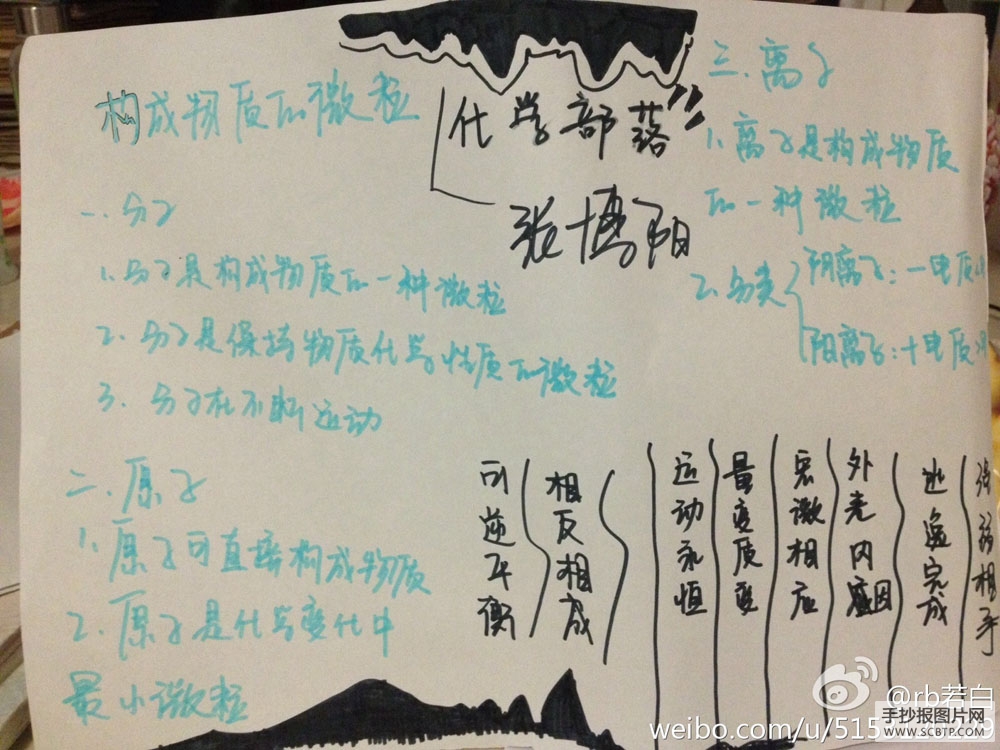 构成物质的微粒
化学部落
张博阳
一.分子
1.分子是构成物质的一种微粒
2.分子是保持物质化学性质的微粒
3.分子在不断运动
二.原子
1.原子可直接构成物质
2.原子是化学变化中
最小微粒
三.离子
1.离子是构成物质
的一种微粒
2.分类
阴离子:一电质
阳离子:十电质
可逆平衡
相反相成
运动永恒
量变质变
宏微相应
外壳内因
递完成
强弱相
@rb若白
weibo.com/u/515
手抄报图片网
WWW.SCBTP.COM